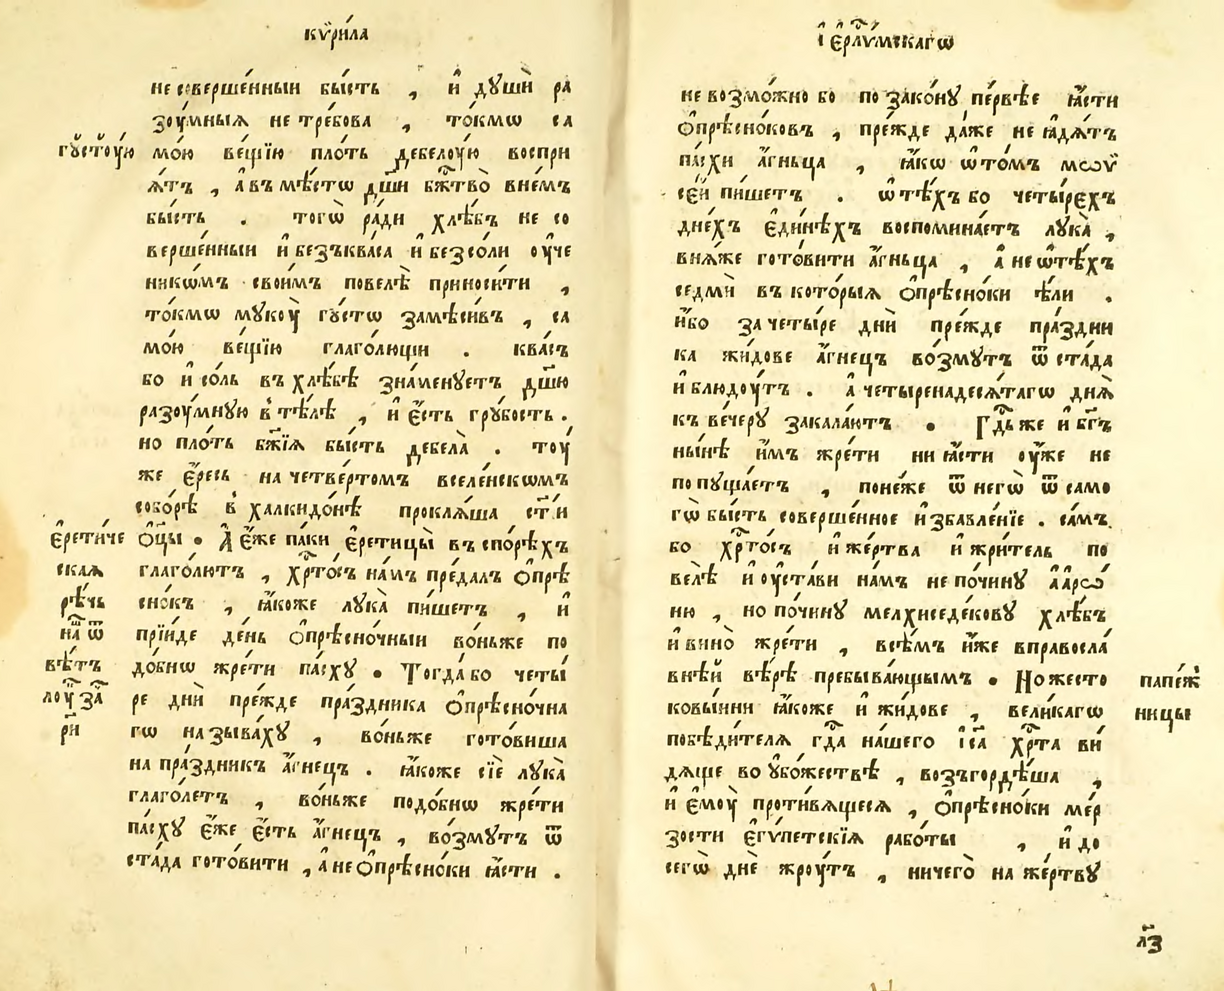 кѷри́ла
не совершенныи бы́сть , и҆ дꙋшѝ ра
зоу́мныѧ не тре́бова , то́кмѡ са
гꙋ́стоую
мо́ю ве́щїю пло́ть дебелоую воспри
ѧ́тъ , а҆ въ мѣ́стѡ дш҃и бж҃тво̀ вне́мъ
бы́сть . тогѡ̀ ра́ди хлѣ́бъ не со
верше́нныи и҆ безъква́са и҆ безсо́ли оу҆че
никѡ́мъ свои́мъ повелѣ̀ приноси́ти ,
то́кмѡ мꙋко́ у гꙋ́стѡ замѣси́въ , са
мо́ю ве́щїю глаго́лющи . ква́съ
бо и҆ со́ль въ хлѣ́бѣ зна́менꙋетъ дш҃ю
разоу́мнꙋю в̾ тѣ́лѣ , и҆ є҆́сть грꙋ́бость .
но пло́ть бж҃їѧ бы́сть дебела̀ . тоу́
же є҆́ресь на четве́ртомъ вселе́нскомъ
собо́рѣ в̾ халкидо́нѣ проклѧ́ша ст҃і́и
є҆ретиче
ская
рѣчь
на̀ ѿ
вѣ́тъ
лоу҃ за҃
ри҃
ѻ҆ц҃ы . А҆ є҆́же па́ки є҆ретицы̀ въ спо́рѣхъ
глаго́лютъ , хрⷭ҇то́съ на́мъ пре́далъ ѻ҆прѣ
сно́къ , ꙗ҆́коже лꙋка̀ пи́шетъ , и҆
прїи́де де́нь ѻ҆прѣсно́чныи во́ньже по
до́бнѡ жре́ти па́схꙋ . Тогда́ бо четы́
ре днѝ пре́жде пра́здника ѻ҆прѣсно́чна
гѡ называ́хꙋ , во́ньже гото́виша
на пра́здникъ а҆́гнецъ . ꙗ҆́коже сїѐ лꙋка̀
глаго́летъ , во́ньже подо́бнѡ жре́ти
па́схꙋ є҆́же є҆́сть а҆́гнецъ , во́змꙋтъ ѿ
ста́да гото́вити , а҆ не ѻ҆прѣсно́ки ꙗ҆́сти .
і҆є҆рлⷭ҇и́мскагѡ
не возмо́жно бо по зако́нꙋ пе́рвѣе ꙗ҆́сти
ѻ҆прѣсно́ковъ , пре́жде да́же не ꙗ҆дѧ́тъ
па́схи а҆́гньца , ꙗ҆́кѡ ѡ҆ то́мъ мѡѷ
се́й пи́шетъ . ѡ҆ тѣ́хъ бо четы́рехъ
дне́хъ є҆ди́нѣхъ воспомина́етъ лꙋка̀ ,
внѧ́же гото́вити а҆́гньца , а҆ не ѡ҆ тѣ́хъ
седмѝ въ кото́рыѧ ѻ҆прѣсно́ки ѣ҆́ли .
и҆́бо за четы́ре днѝ пре́жде пра́здни
ка жи́дове а҆́гнецъ во́змꙋтъ ѿ ста́да
и҆ блюдоу́тъ . а҆ четыренадесѧ́тагѡ днѧ̀
къ ве́черꙋ закала́ютъ . Гдⷭ҇ь же и҆ бг҃ъ
ны́нѣ и҆́мъ жре́ти ни ꙗ҆́сти оу҆́же не
попꙋща́етъ , поне́же ѿ негѡ̀ ѿ само
гѡ̀ бы́сть соверше́нное и҆збавле́нїе . са́мъ
бо хрⷭ҇то́съ и҆ же́ртва и҆ жри́тель по
велѣ̀ и҆ оу҆ста́ви на́мъ не по чи́нꙋ а҆арѡ́
ню , но по чи́нꙋ мелхиседе́ковꙋ хлѣ́бъ
и҆ вино̀ жре́ти , всѣ́мъ и҆́же в правосла́
внѣй вѣ́рѣ пребыва́ющымъ . Но жесто
папе́ж
ницы
ковы́йни ꙗ҆́коже и҆ жи́дове , вели́кагѡ
побѣди́телѧ гдⷭ҇а на́шего і҆с҃а хрⷭ҇та ви́
дѧще во ᲂу҆бо́жествѣ , возъгордѣ́ша ,
и҆ є҆моу̀ проти́вѧщесѧ , ѻ҆прѣсно́ки ме́р
зости є҆гѵ́петскїѧ рабо́ты , и҆ до
сегѡ̀ днѐ жроу́тъ , ничего̀ на же́ртвꙋ
л҃з